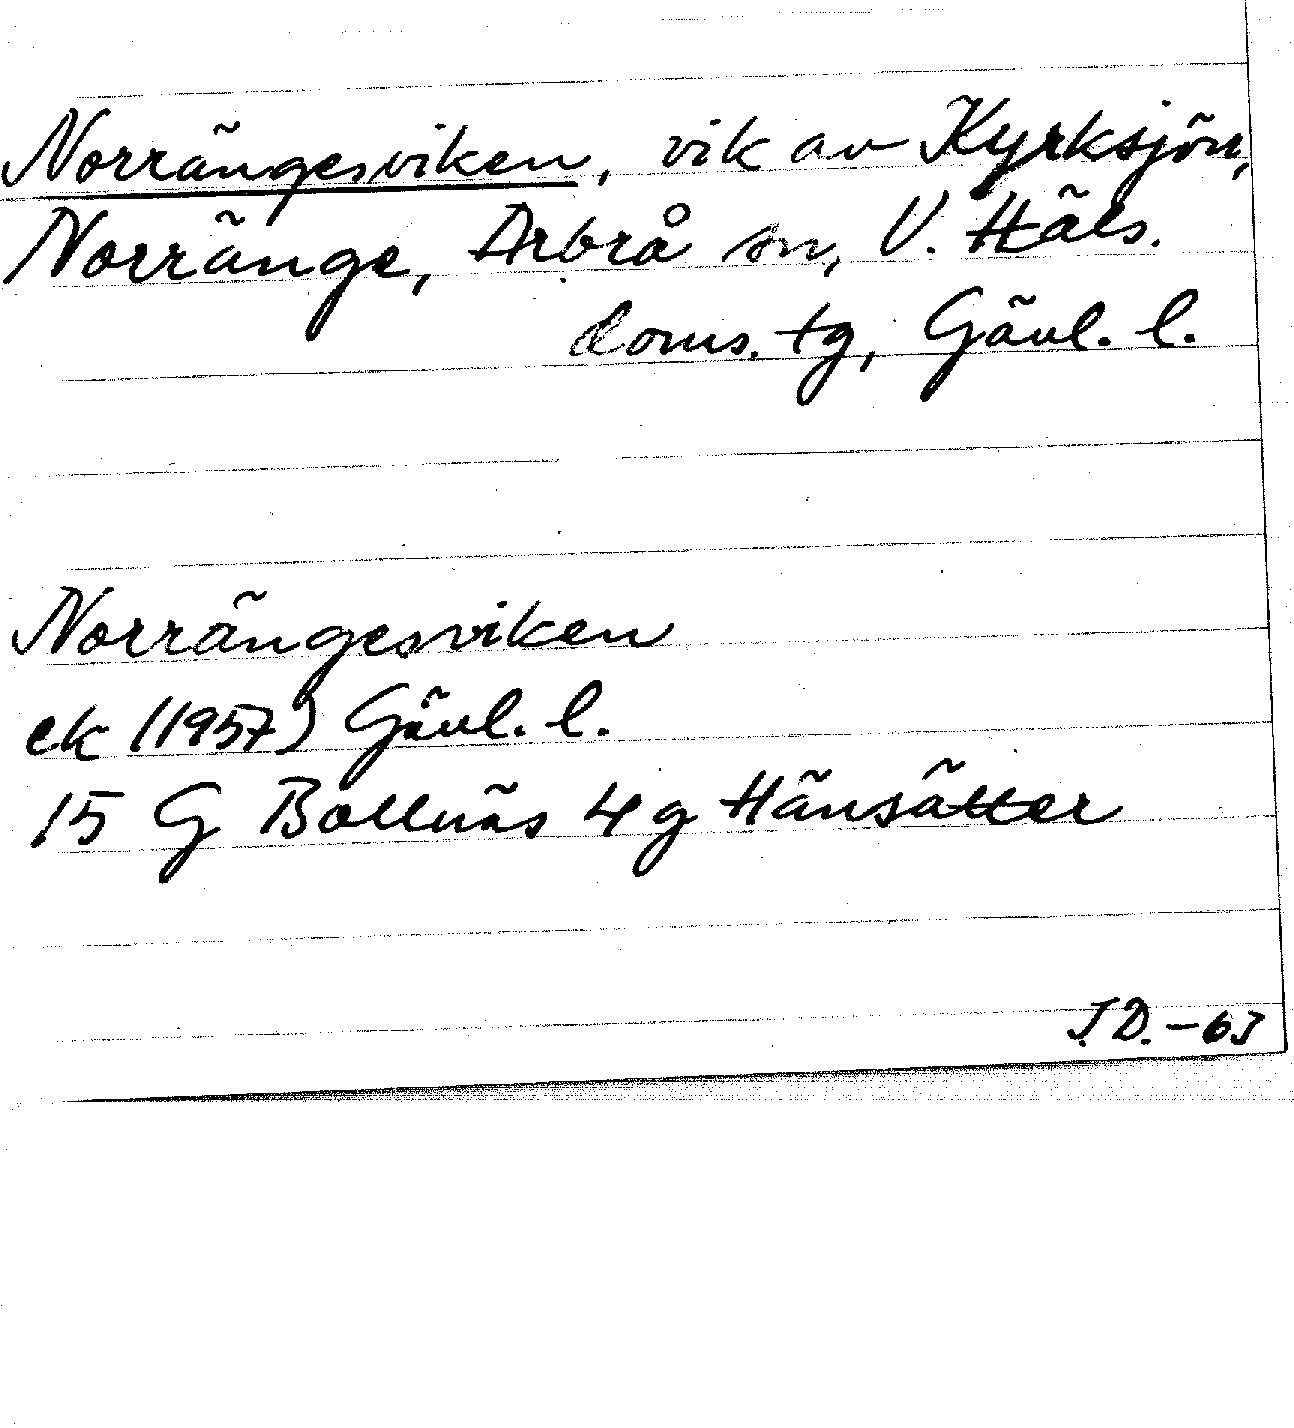 Norrängesviken, vik av Kyrksjön,
Norränge, Arbrå sn, V. Häls.
doms. tg, Gävl. l.
Norrängesviken
ek (1957) Gävl. l.
15 G Bollnäs 4 g Hänsätter
J.D. -63